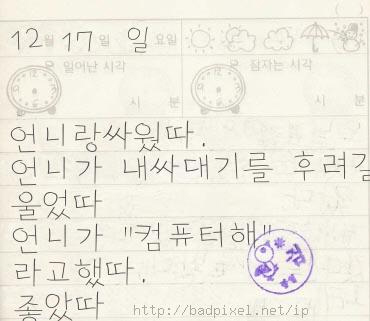 12월 17일 일요일
일어난 시각 잠자는 시각
시 분 시 분
언니랑싸웠따.
언니가 내싸대기를 후려갈
울었따
언니가 "컴퓨터해"
라고했따.
좋았따
http://badpixel.net/ip